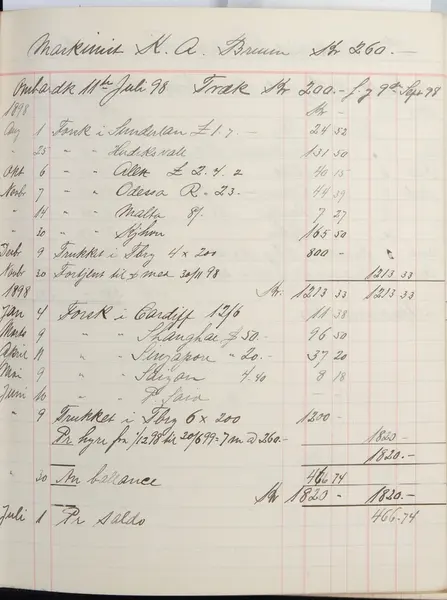 Maskinist K. A. Bruun Kr 260.-
Ombord d 11te Juli 98 Træk Kr 200.- f. 9de Sept 98
1898 Kr -
Aug 1 Forsk i Sunderlan £ 1.7. - 24 52
" 25 " " Hudiksvale 131 50
Okt 6 " " Alex £ 2.4.2 40 15
Novbr 7 " " Odessa R - 23. - 44 39
" 14 " " Malta 8/- 7 27
" 20 " " Kjhvn 165 50
Debr 9 Trukket i Tbrg 4 x 200 800 -
Novbr 30 Fortjent til 30/11 98 1213 33
Kr 1213 33 1213 33
1898
Jan 4 Forsk i Cardiff 12/6 11 58
Marts 9 " " Shanghae $ 50.- 96 50
April 11 " " Singapore " 20.- 37 20
Mai 9 " " Saigon 4.40 8 18
Juni 10 " "
" 9 Trukket i Tbrg 6 x 200 1200 -
Pr hyre fra 1/12 98 til 30/6 99 = 7 m a 260.- 1820 -
1820.-
" 30 An ballance 466 74
Kr 1820 - 1820.-
Juli 1 Pr saldo 466.74